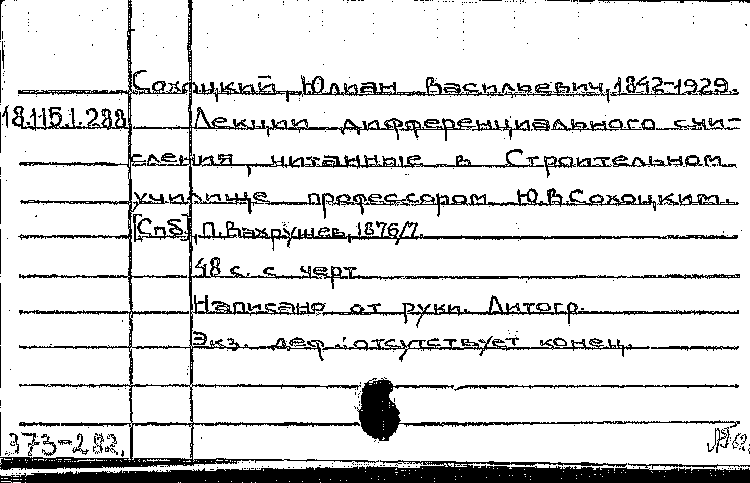 Сохоцкий, Юлиан Васильевич, 1842-1929.
18.115.1.288
Лекции дифференциального счи-
сления, читанные в Строительном
училище профессором Ю.В.Сохоцким.
[Спб], П.Вахрушев, 1876/7.
48 с. с черт
Написано от руки. Литогр.
Экз. деф.: отсутствует конец.
373-282.